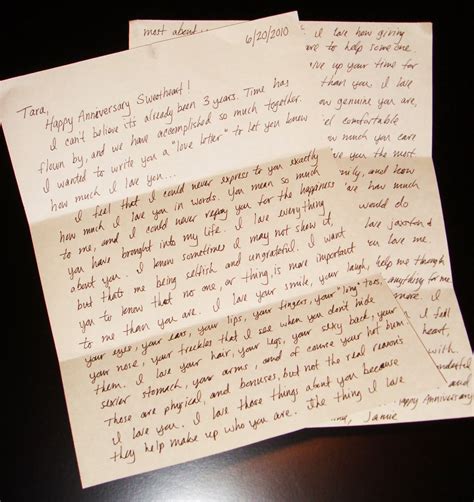 6/20/2010
Tara,
Happy Anniversary Sweetheart!
I can't believe its already been 3 years. Time has
flown by, and we have accomplished so much together.
I wanted to write you a "love letter" to let you know
how much I love you...
I feel that I could never express to you exactly
how much I love you in words. You mean so much
to me, and I could never repay you for the happiness
you have brought into my life. I love everything
about you. I know sometimes I may not show it,
but thats me being selfish and ungrateful. I want
you to know that no one, or thing, is more important
to me than you are. I love your smile, your laugh,
your eyes, your ears, your lips, your fingers, your "long" toes,
your nose, your freckles that I see when you don't hide
them. I love your hair, your legs, your sexy back, your
sexier stomach, your arms, and of course your hot bum.
Those are physical, and bonuses, but not the real reasons
I love you. I love those things about you because
they help make up who you are. The thing I love
most about
I love how giving
are to help someone
give up your time for
than you. I love
how genuine you are,
feel comfortable
how much you care
love you the most
family, and know
how much
would do
love jaxston &
love me.
help me through
anything for me
more. I
I feel
heart,
with
and
Happy Anniversary
Jamie